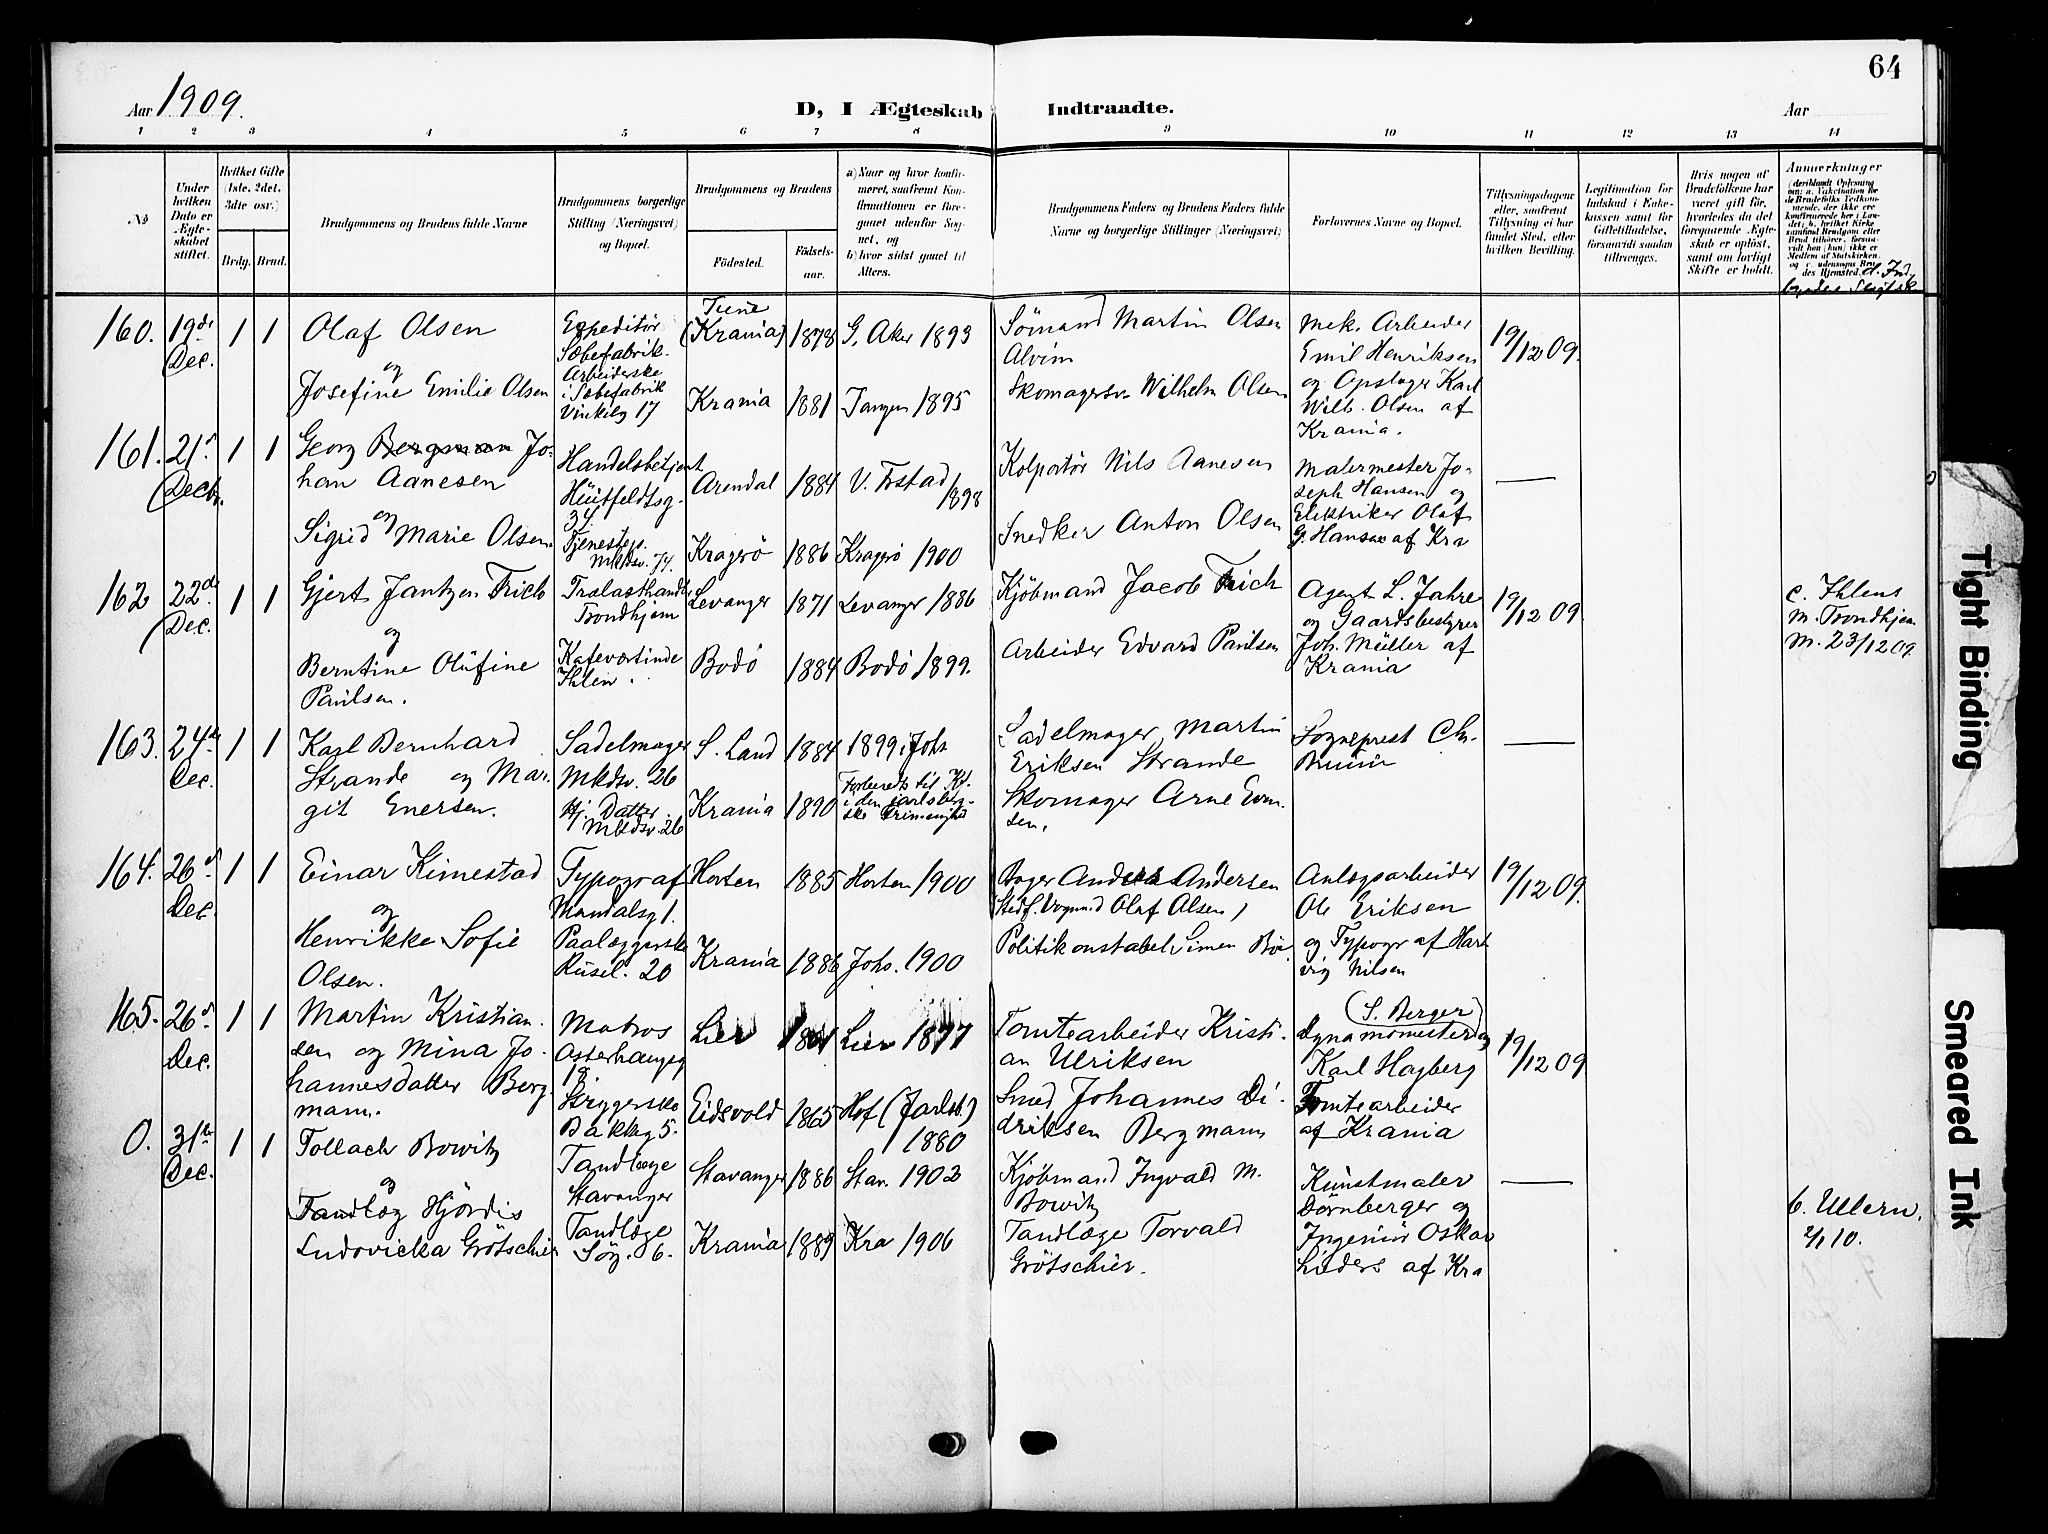 64
Aar 1909.
D, I Ægteskab Indtraadte.
Aar
1 2 3 4 5 6 7 8 9 10 11 12 13 14
№
Under hvilken Dato er Ægteskabet stiftet.
Hvilket Gifte (1ste, 2det, 3dte osv.)
Brdg. Brud.
Brudgommens og Brudens fulde Navne
Brudgommens borgerlige Stilling (Næringsvei) og Bopæl.
Brudgommens og Brudens
Fødested. Fødselsaar.
a) Naar og hvor konfirmeret, saafremt Konfirmationen er foregaaet udenfor Sognet, og
b) hvor sidst gaaet til Alters.
Brudgommens Faders og Brudens Faders fulde Navne og borgerlige Stillinger (Næringsvei)
Forlovernes Navne og Bopæl.
Tillysningsdagene eller, saafremt Tillysning ei har fundet Sted, efter hvilken Bevilling.
Legitimation for Indskud i Enkekassen samt for Giftetilladelse, forsaavidt saadan tiltrænges.
Hvis nogen af Brudefolkene har været gift før, hvorledes da det foregaaende Ægteskab er opløst, samt om lovligt Skifte er holdt.
Anmærkninger
160. 19de Dec. 1 1
Olaf Olsen
og
Josefine Emilie Olsen
Expeditør
Sæbefabrik.
Arbeiderske
i Sæbefabrik
Vinkelg 17
Tune
(Krania) 1878 G. Aker 1893
Krania 1881 Tangen 1895
Sömand Martin Olsen
Alvim
Skomagersv. Wilhelm Olsen
Mek. Arbeider
Emil Henriksen
og Opslager Karl
Wilh. Olsen af
Krania.
19/12 09.
161. 21s Decbr. 1 1
Georg Bergman Jo-
han Aanesen
og
Sigrid Marie Olsen.
Handelsbetjent
Hüitfeldtsg.
34.
Tjenestep.
Mkdsv. 74.
Arendal 1884 V. Frstad 1898
Kragerö 1886 Kragerö 1900
Kolportör Nils Aanesen
Snedker Anton Olsen
Malermester Jo-
seph Hansen og
Elektriker Olaf
G. Hansen af Kra
—
162 22de Dec. 1 1
Gjert Jantzen Frich
og
Berntine Olüfine
Paulsen.
Trælasthandler
Trondhjem
Kafeværtinde
Ihlen.
Levanger 1871 Levanger 1886
Bodö 1884 Bodö 1899.
Kjöbmand Jacob Frich
Arbeider Edvard Paulsen
Agent L. Jahre
og Gaardsbestyrer
Joh. Müller af
Krania
19/12 09.
c. Ihlens
m. Trondhjem
M. 23/12 09.
163. 24de Dec. 1 1
Karl Bernhard
Strande og Mar-
git Enersen.
Sadelmager
Mkdsv. 26
Hj. Datter
Mkdsv. 26
S. Land 1884 1899 i Johs
Krania 1890
Forberedt til Kf.
i den jarlsberg-
ske Frimenighed
Sadelmager Martin
Eriksen Strande
Skomager Arne Ener-
sen.
Sogneprest Chr.
Bruun
—
164. 26d Dec. 1 1
Einar Kimestad
og
Henrikke Sofie
Olsen.
Typograf
Mandalsg 1.
Paalæggerske
Rusel. 20
Horten 1885 Horten 1900
Krania 1886 Johs. 1900
Bager Anders Andersen
(Stedf. Vognmd Olaf Olsen)
Politikonstabel Simen Bö
Anlægsarbeider
Ole Eriksen
og Typograf Hart
vig Nilsen
19/12 09.
165. 26d. Dec. 1 1
Martin Kristian
sen og Mina Jo-
hannesdatter Berg
mann.
Matros
Osterhausg
18.
Stryggerske
Bakkeg 5.
Lier Lier 1877
Eidsvold 1865 Hof (Jarlsb.)
1880
Tomtearbeider Kristi-
an Ulriksen
Smed Johannes Di-
driksen Bergmann
(S. Berger)
Dynamomester og
Karl Hagberg
Tomtearbeider
af Krania
19/12 09
0. 31te Dec. 1 1
Tollach Bowitz
og
Tandlæg Hjördis
Ludovicka Grötschier
Tandlæge
Stavanger
Tandlæge
Sög. 6.
Stavanger 1886 Stav. 1902
Krania 1889 Kra 1906
Kjöbmand Ingvald M.
Bowitz
Tandlæge Torvald
Grötschier.
Kunstmaler
Dörnberger og
Ingeniör Oskar
Lüders af Kra
—
b. Ullern.
2/1 10.
Tight Binding
Smeared Ink